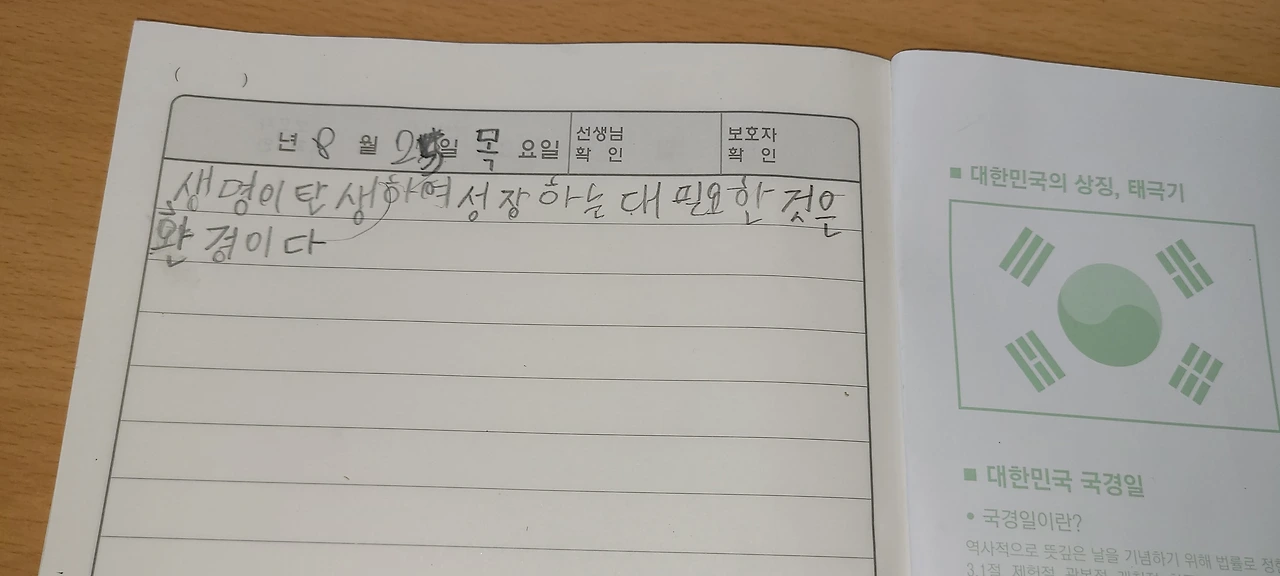 ( )
년 8 월 25일 목 요일
선생님
확 인
보호자
확 인
생명이 탄생하여 성장하는 대 필요한 것은
환경이다
■ 대한민국의 상징, 태극기
■ 대한민국 국경일
• 국경일이란?
역사적으로 뜻깊은 날을 기념하기 위해 법률로
3.1절, 제헌절, 광복절, 개천절